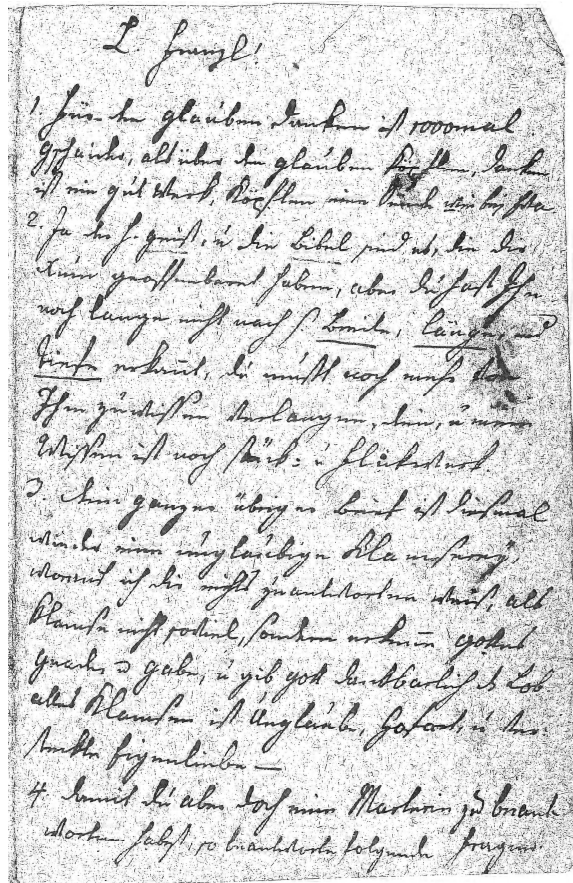 L. Franzl!
1. Für den glauben danken ist 1000mal
gscheider, als über den glauben köpflen, danken
ist ein gut Werk, köpflen eine Sünde
2. Ja der h. geist, u die Bibel sind es, die dir
geoffenbaret haben, aber du hast Ihn
noch lange nicht nach s. Breite, länge, und
Tiefe erkannt, du must noch mehr von
Ihm zu wissen verlangen, dein, u mein
Wissen ist noch stück- u flickwerk.
3. dein ganzer übriger brief ist diesmal
wieder eine ungläubige Klamserey,
worauf ich dir nichts zu antworten weis, als
Klamse nicht soviel, sondern erkenne gottes
gnade u gabe, u gib gott dankbarlich ds Lob
alles Klamsen ist Unglaube, Hofart, u ver-
steckte Eigenliebe —
4. damit du aber doch eine Materie zu beant-
worten habest, so beantworte folgende fragen